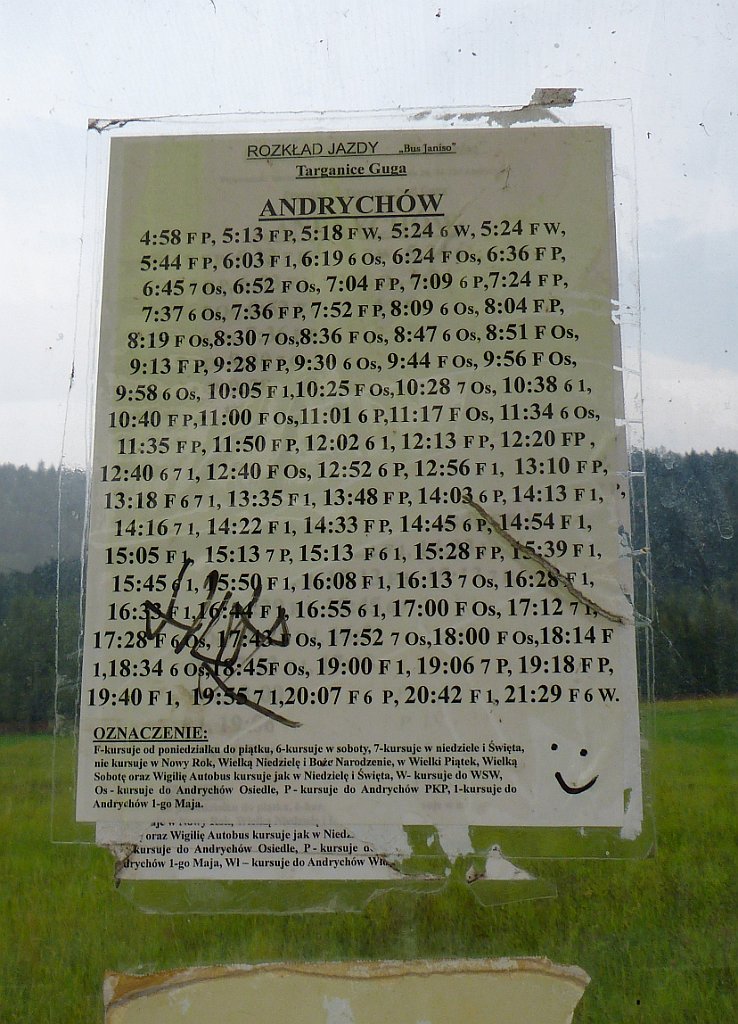 ROZKŁAD JAZDY „Bus Janiso"
Targanice Guga
ANDRYCHÓW
4:58 F P, 5:13 F P, 5:18 F W, 5:24 6 W, 5:24 F W,
5:44 F P, 6:03 F 1, 6:19 6 Os, 6:24 F Os, 6:36 F P,
6:45 7 Os, 6:52 F Os, 7:04 F P, 7:09 6 P,7:24 F P,
7:37 6 Os, 7:36 F P, 7:52 F P, 8:09 6 Os, 8:04 F P,
8:19 F Os,8:30 7 Os,8:36 F Os, 8:47 6 Os, 8:51 F Os,
9:13 F P, 9:28 F P, 9:30 6 Os, 9:44 F Os, 9:56 F Os,
9:58 6 Os, 10:05 F 1,10:25 F Os,10:28 7 Os, 10:38 6 1,
10:40 F P,11:00 F Os,11:01 6 P,11:17 F Os, 11:34 6 Os,
11:35 F P, 11:50 F P, 12:02 6 1, 12:13 F P, 12:20 FP ,
12:40 6 7 1, 12:40 F Os, 12:52 6 P, 12:56 F 1, 13:10 F P,
13:18 F 6 7 1, 13:35 F 1, 13:48 F P, 14:03 6 P, 14:13 F 1,
14:16 7 1, 14:22 F 1, 14:33 F P, 14:45 6 P, 14:54 F 1,
15:05 F 1, 15:13 7 P, 15:13 F 6 1, 15:28 F P, 15:39 F 1,
15:45 6 1, 15:50 F 1, 16:08 F 1, 16:13 7 Os, 16:28 F 1,
16:33 F 1,16:44 F 1, 16:55 6 1, 17:00 F Os, 17:12 7 1,
17:28 F 6 Os, 17:43 F Os, 17:52 7 Os,18:00 F Os,18:14 F
1,18:34 6 Os, 18:45F Os, 19:00 F 1, 19:06 7 P, 19:18 F P,
19:40 F 1, 19:55 7 1,20:07 F 6 P, 20:42 F 1, 21:29 F 6 W.
OZNACZENIE:
F-kursuje od poniedziałku do piątku, 6-kursuje w soboty, 7-kursuje w niedziele i Święta,
nie kursuje w Nowy Rok, Wielką Niedzielę i Boże Narodzenie, w Wielki Piątek, Wielką
Sobotę oraz Wigilię Autobus kursuje jak w Niedzielę i Święta, W- kursuje do WSW,
Os - kursuje do Andrychów Osiedle, P - kursuje do Andrychów PKP, 1-kursuje do
Andrychów 1-go Maja.
oraz Wigilię Autobus kursuje jak w
kursuje do Andrychów Osiedle, P - kursuje
1-go Maja, Wł – kursuje do Andrychów